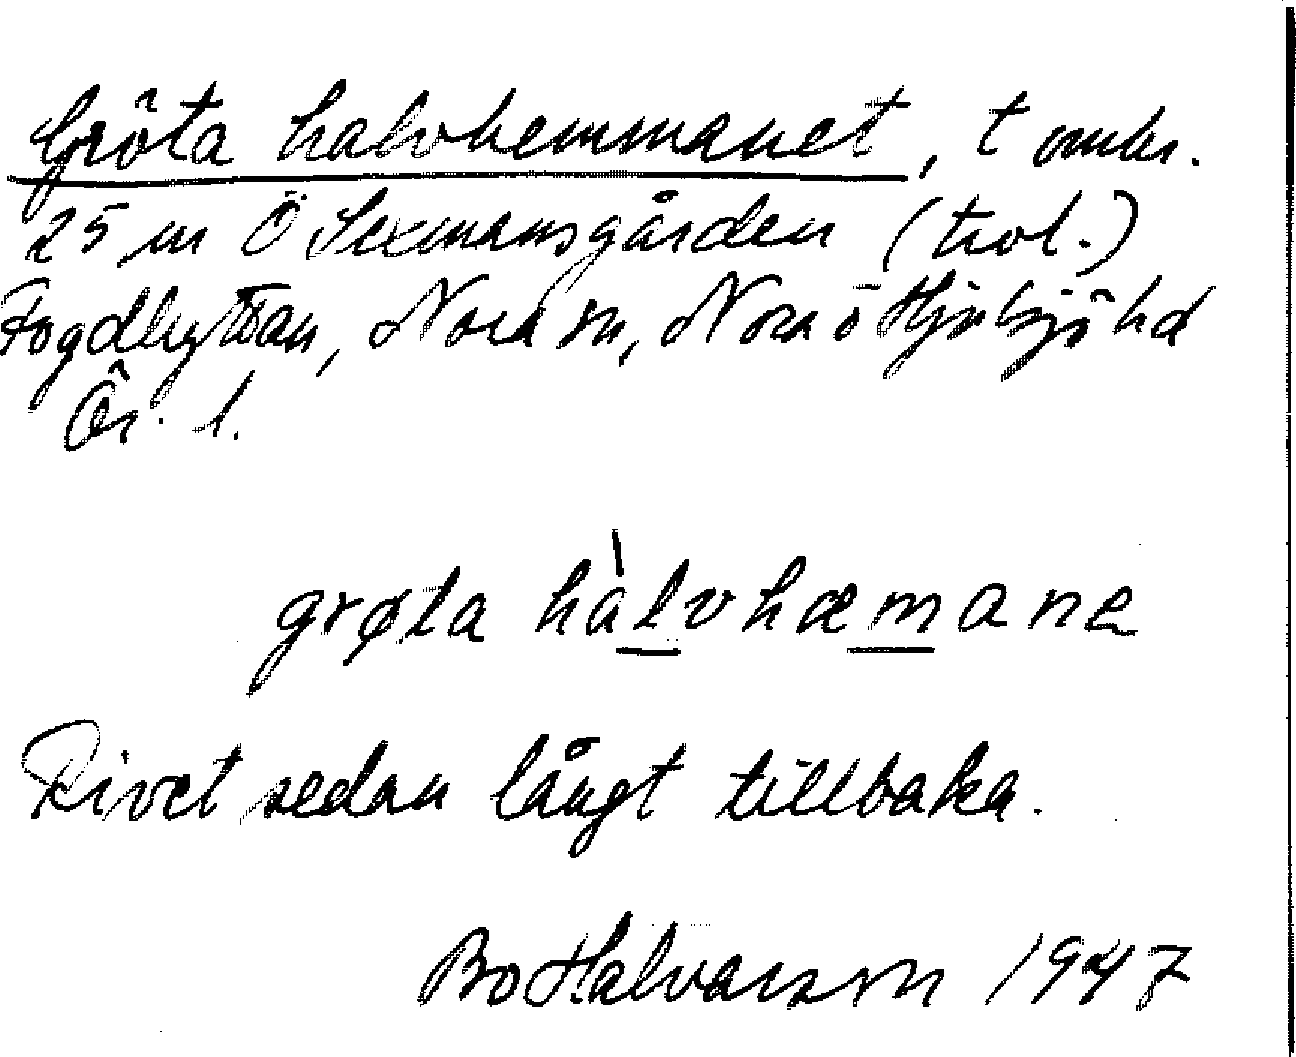 Gröta halvhemmanet, t omkr.
25 m Ö Sexmansgården (trol.)
Fogdhyttan, Nora sn, Nora ö Hjulsjö hd
Ör. l.
grøta hàlvhæmane
Rivet sedan långt tillbaka.
Bo Halvarson 1947